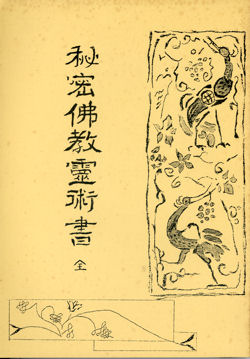 秘密佛教靈術書
全